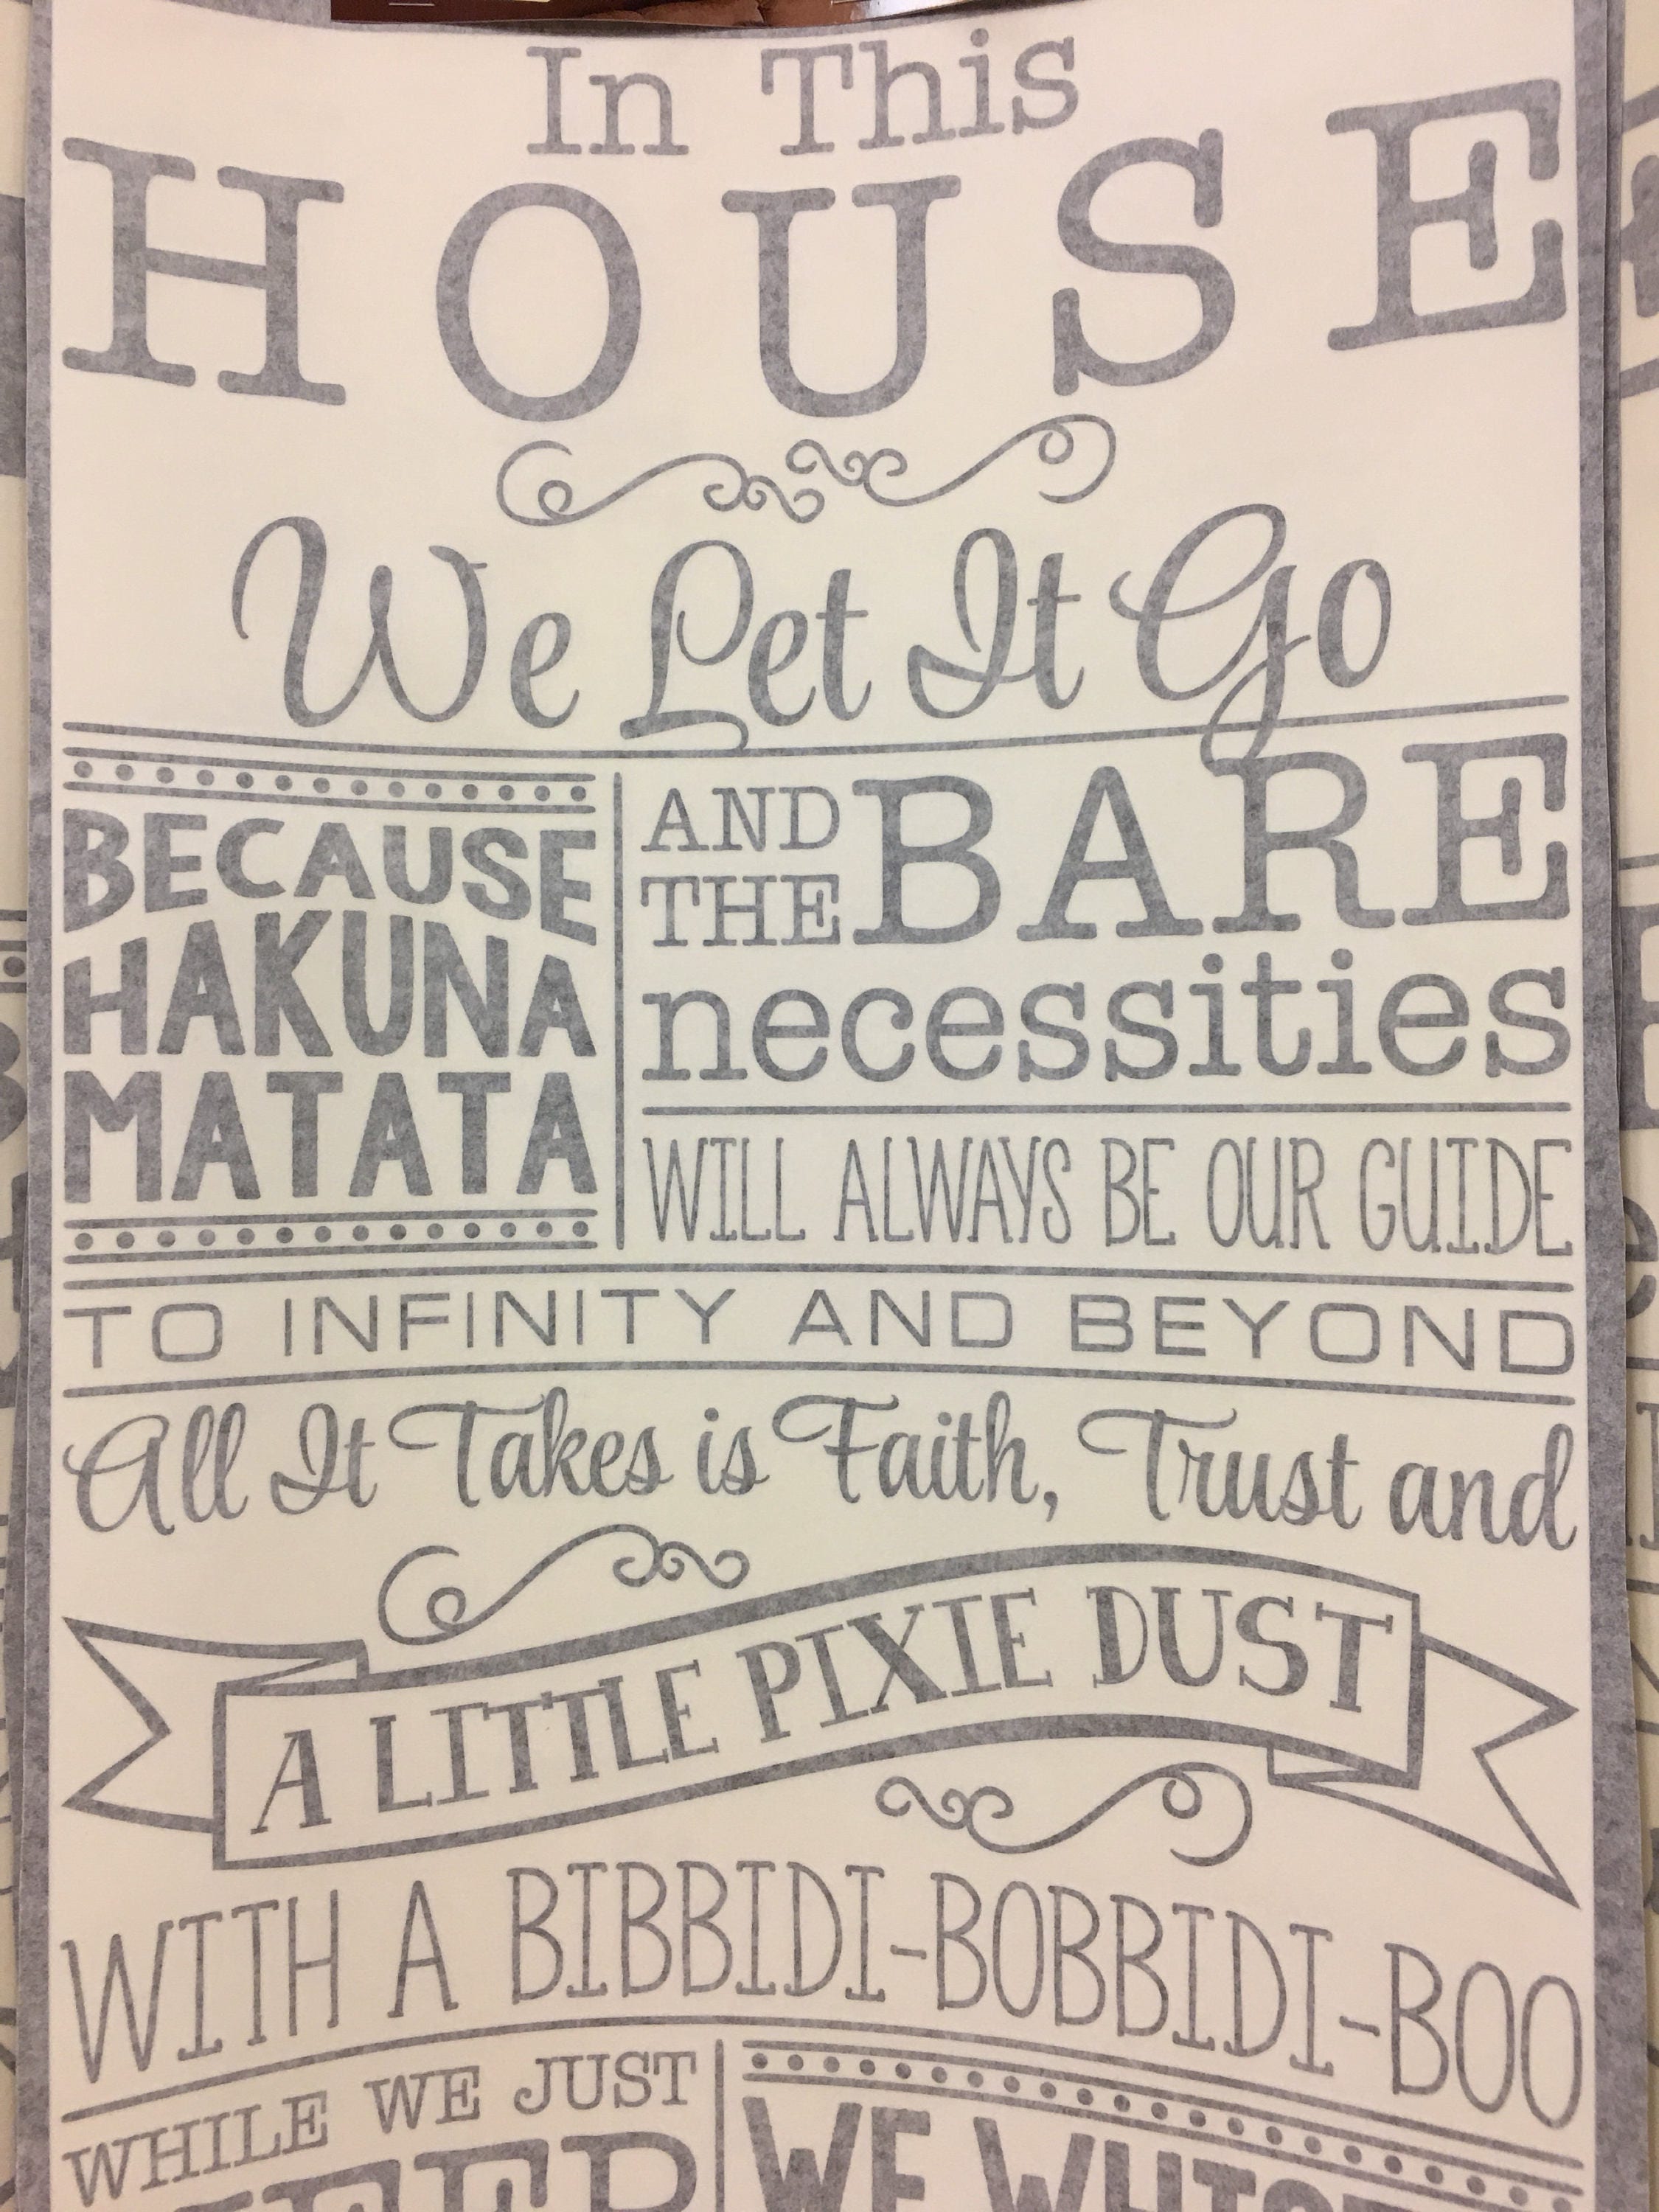 In This
HOUSE
We Let It Go
BECAUSE
HAKUNA
MATATA
AND
THE
BARE
necessities
WILL ALWAYS BE OUR GUIDE
TO INFINITY AND BEYOND
All It Takes is Faith, Trust and
A LITTLE PIXIE DUST
WITH A BIBBIDI-BOBBIDI-BOO
WHILE WE JUST
WE